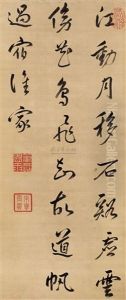 江動月移石谿虛雲
傍花鳥知故道帆
過宿誰家